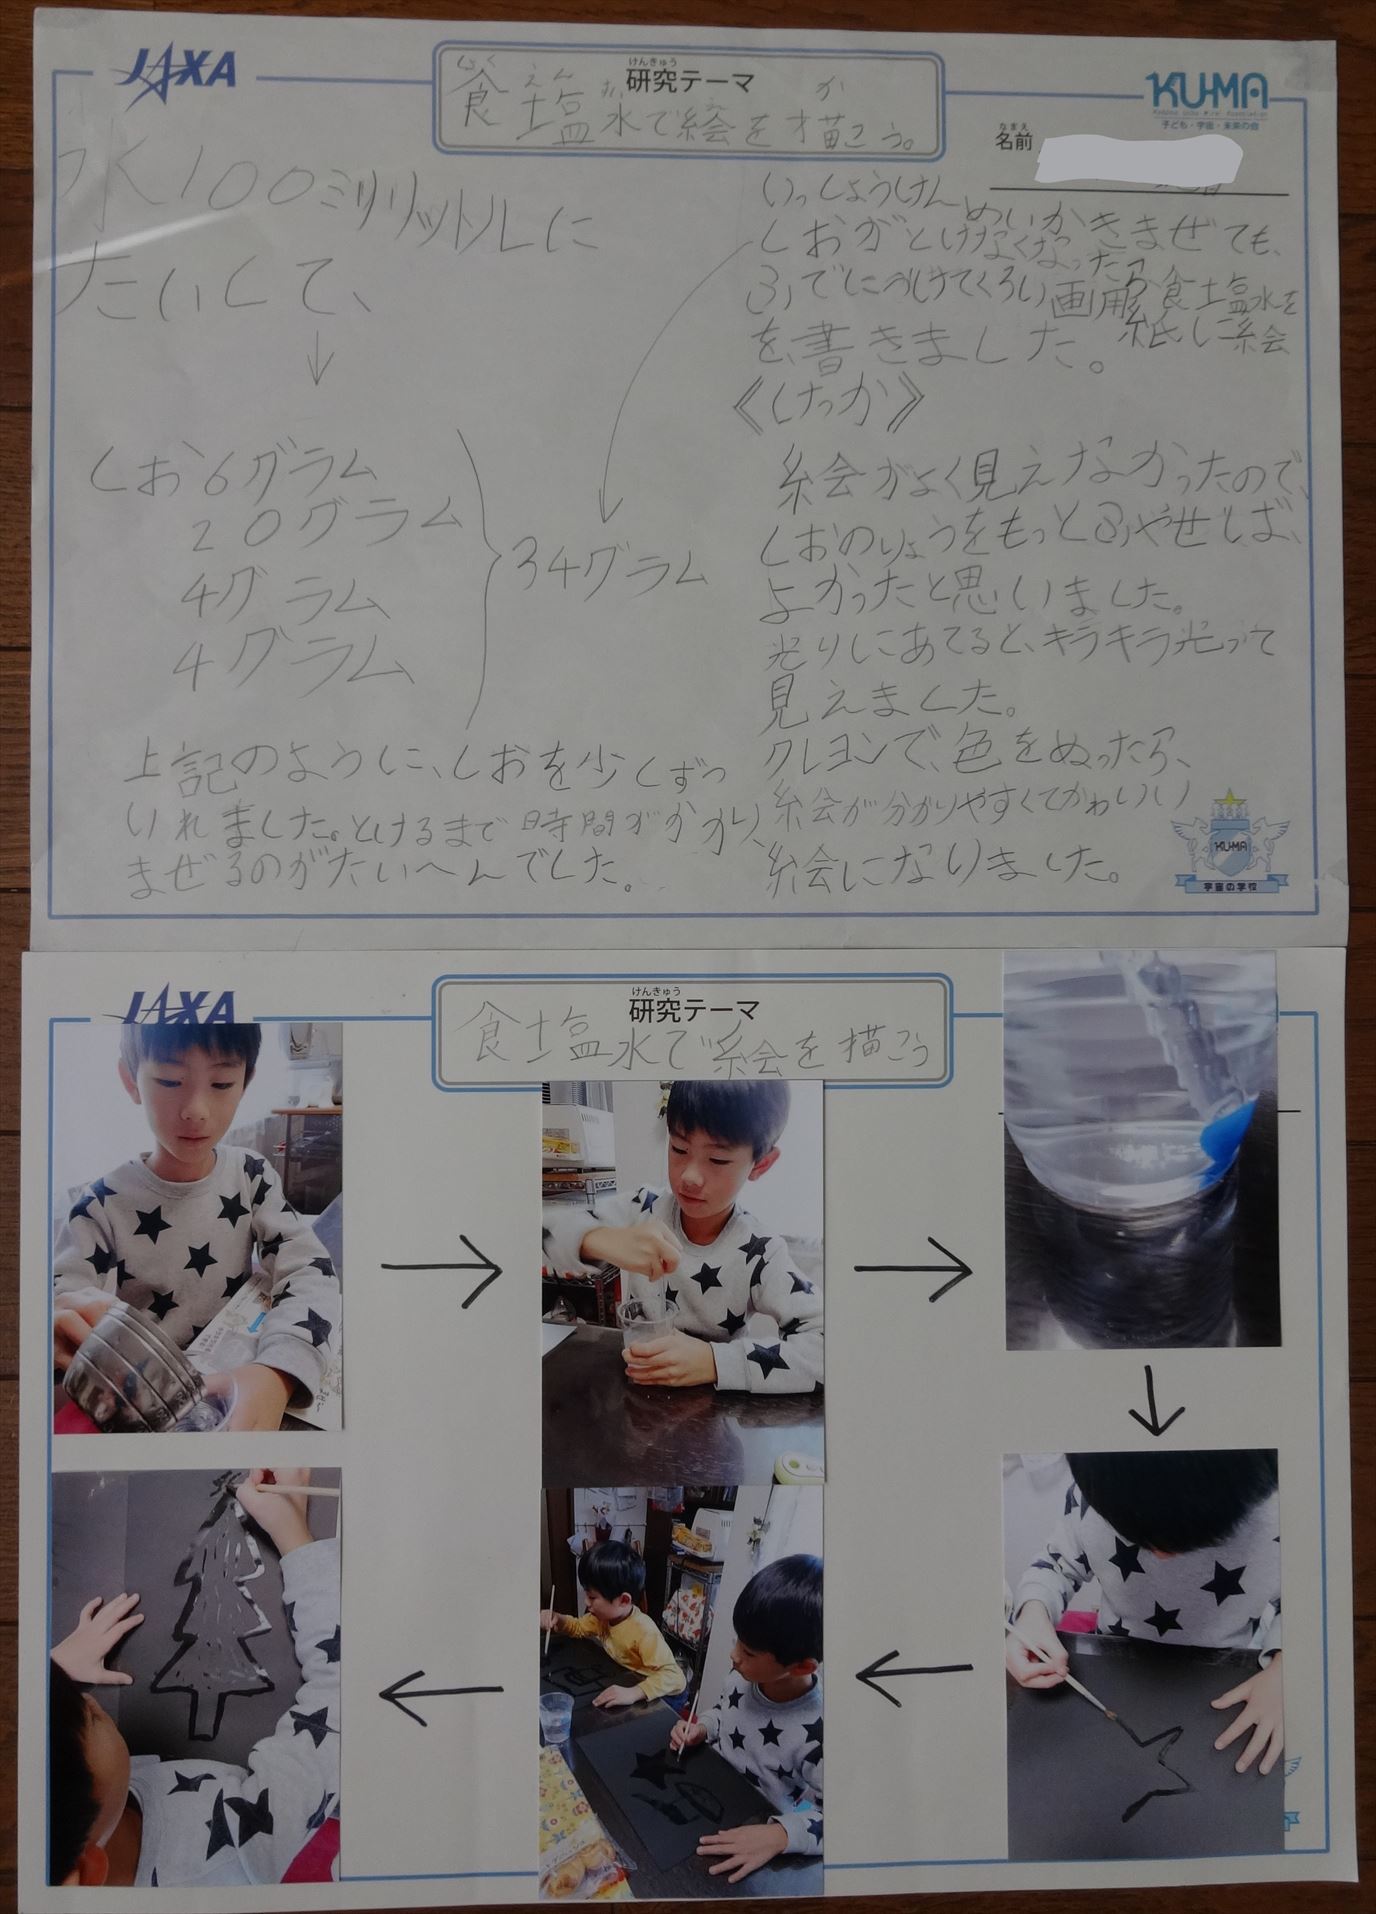 JAXA
けんきゅう
研究テーマ
しょく えん すい え か
食塩水で絵を描こう。
KU-MA
子ども・宇宙・未来の会
なまえ
名前
水100ミリリットルに
たいして、
↓
しお6グラム
20グラム
4グラム
4グラム
34グラム
上記のように、しおを少しずつ
いれました。とけるまで時間がかかり、
まぜるのがたいへんでした。
いっしょうけんめいかきまぜても、
しおがとけなくなったら食塩水を
ふでにつけてくろい画用紙に絵
を書きました。
《けっか》
絵がよく見えなかったので、
しおのりょうをもっとふやせば、
よかったと思いました。
光りにあてると、キラキラ光って
見えました。
クレヨンで、色をぬったら、
絵が分かりやすくてかわいい
絵になりました。
KU-MA
宇宙の学校
JAXA
けんきゅう
研究テーマ
食塩水で絵を描こう